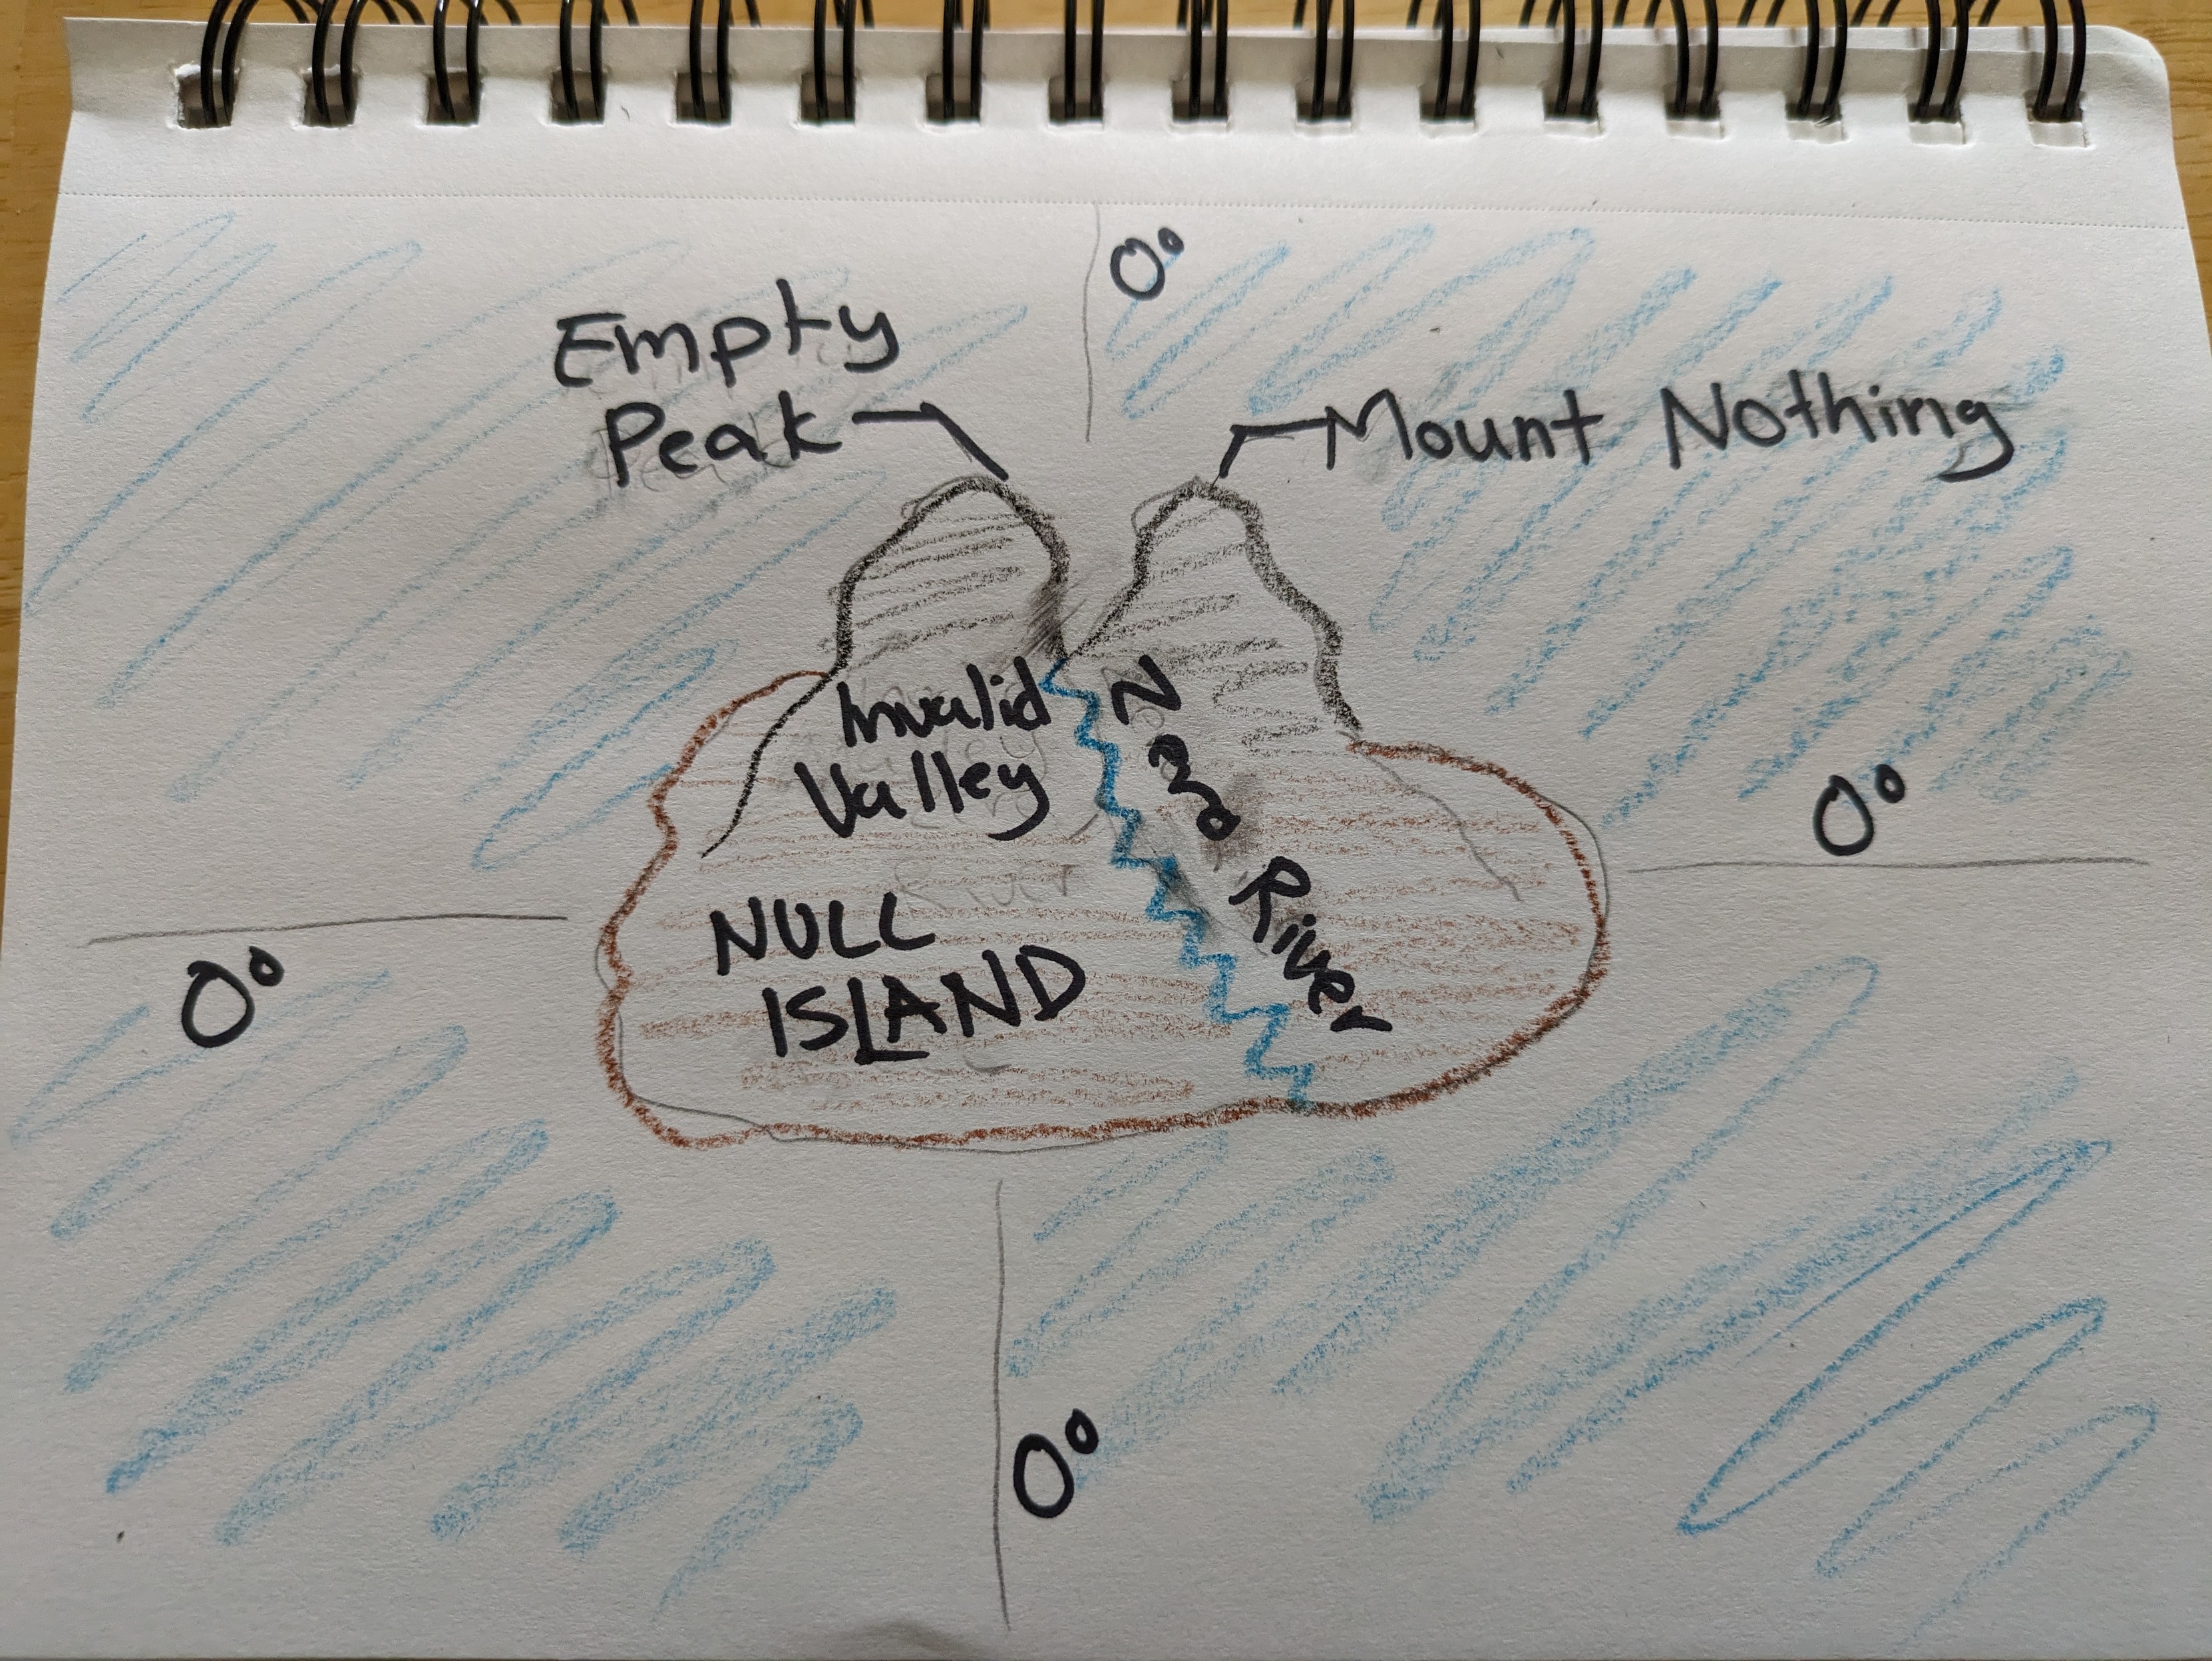 0°
Empty
Peak
Mount Nothing
Invalid
Valley
River
0°
NULL
ISLAND
0°
0°